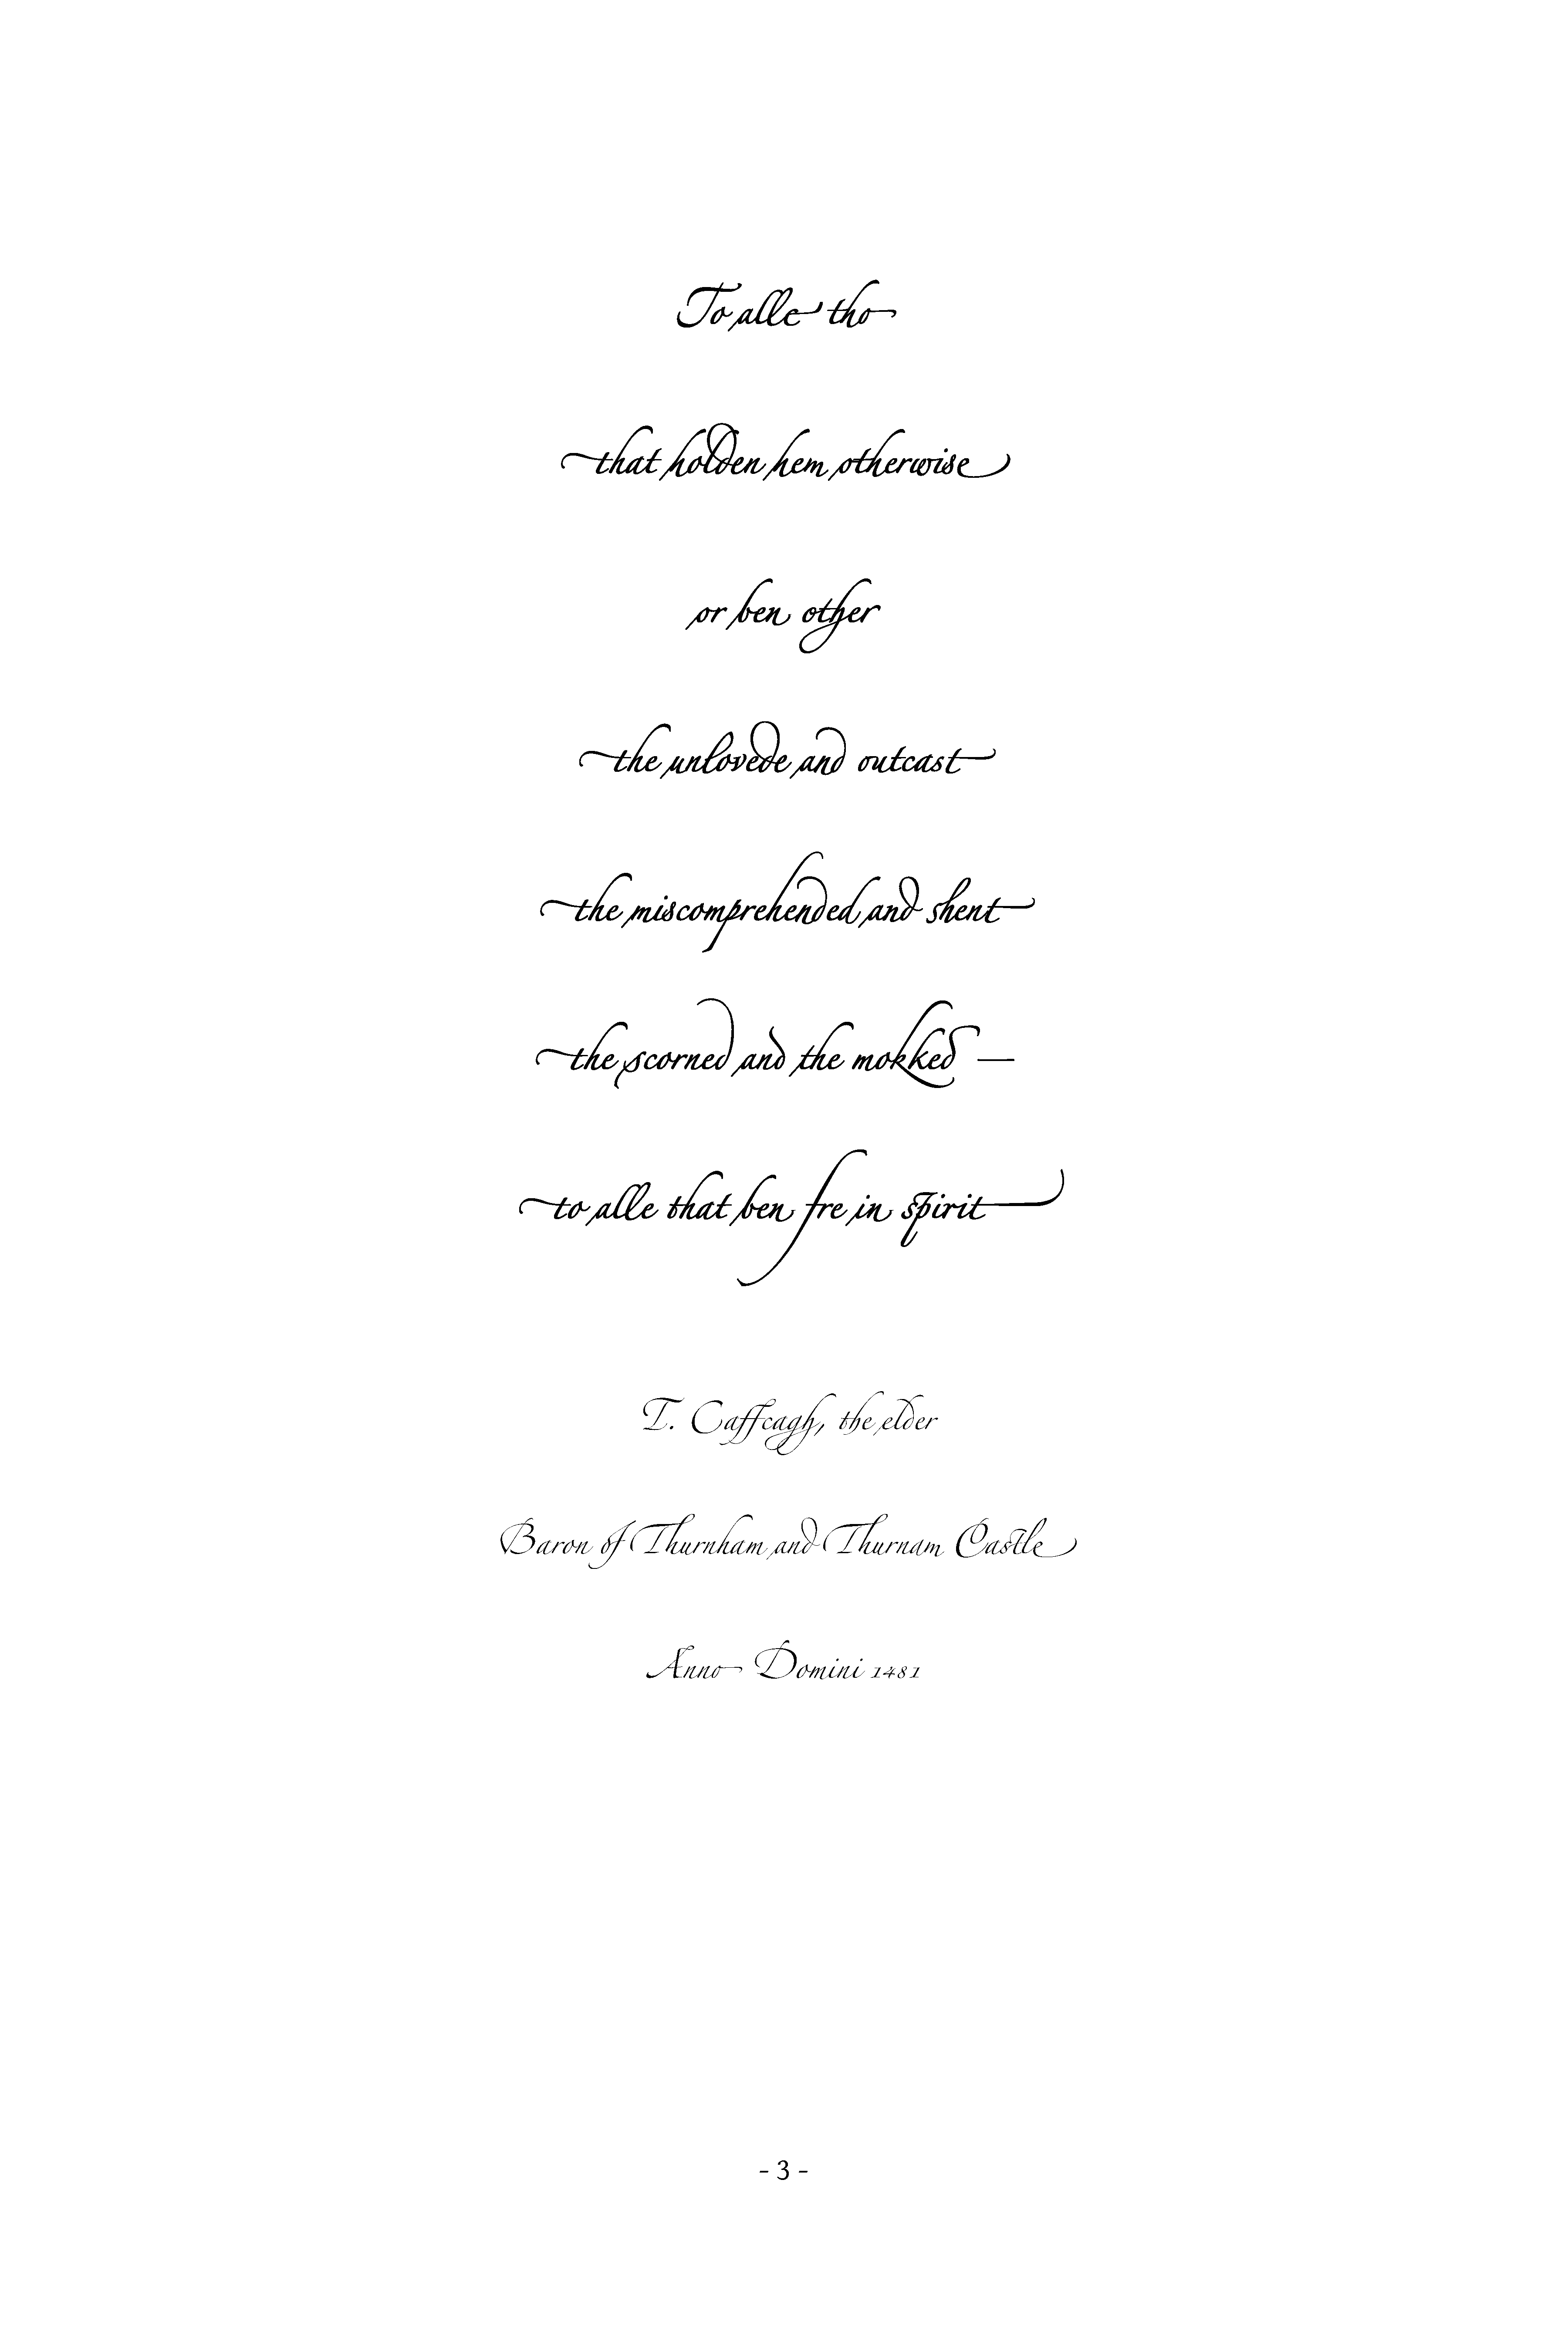 To alle tho
that holden hem otherwise
or ben other
the unlovede and outcast
the miscomprehended and shent
the scorned and the mokked —
to alle that ben fre in spirit
T. Caffcagh, the elder
Baron of Thurnham and Thurnam Castle
Anno Domini 1481
- 3 -